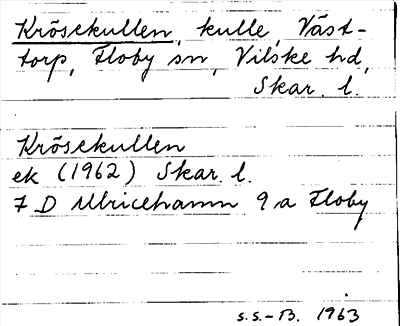 Krösekullen, kulle, Väst-
torp, Floby sn, Vilske hd,
Skar. l.
Krösekullen
ek (1962) Skar. l.
7 D Ulricehamn 9 a Floby
S.S.-B. 1963